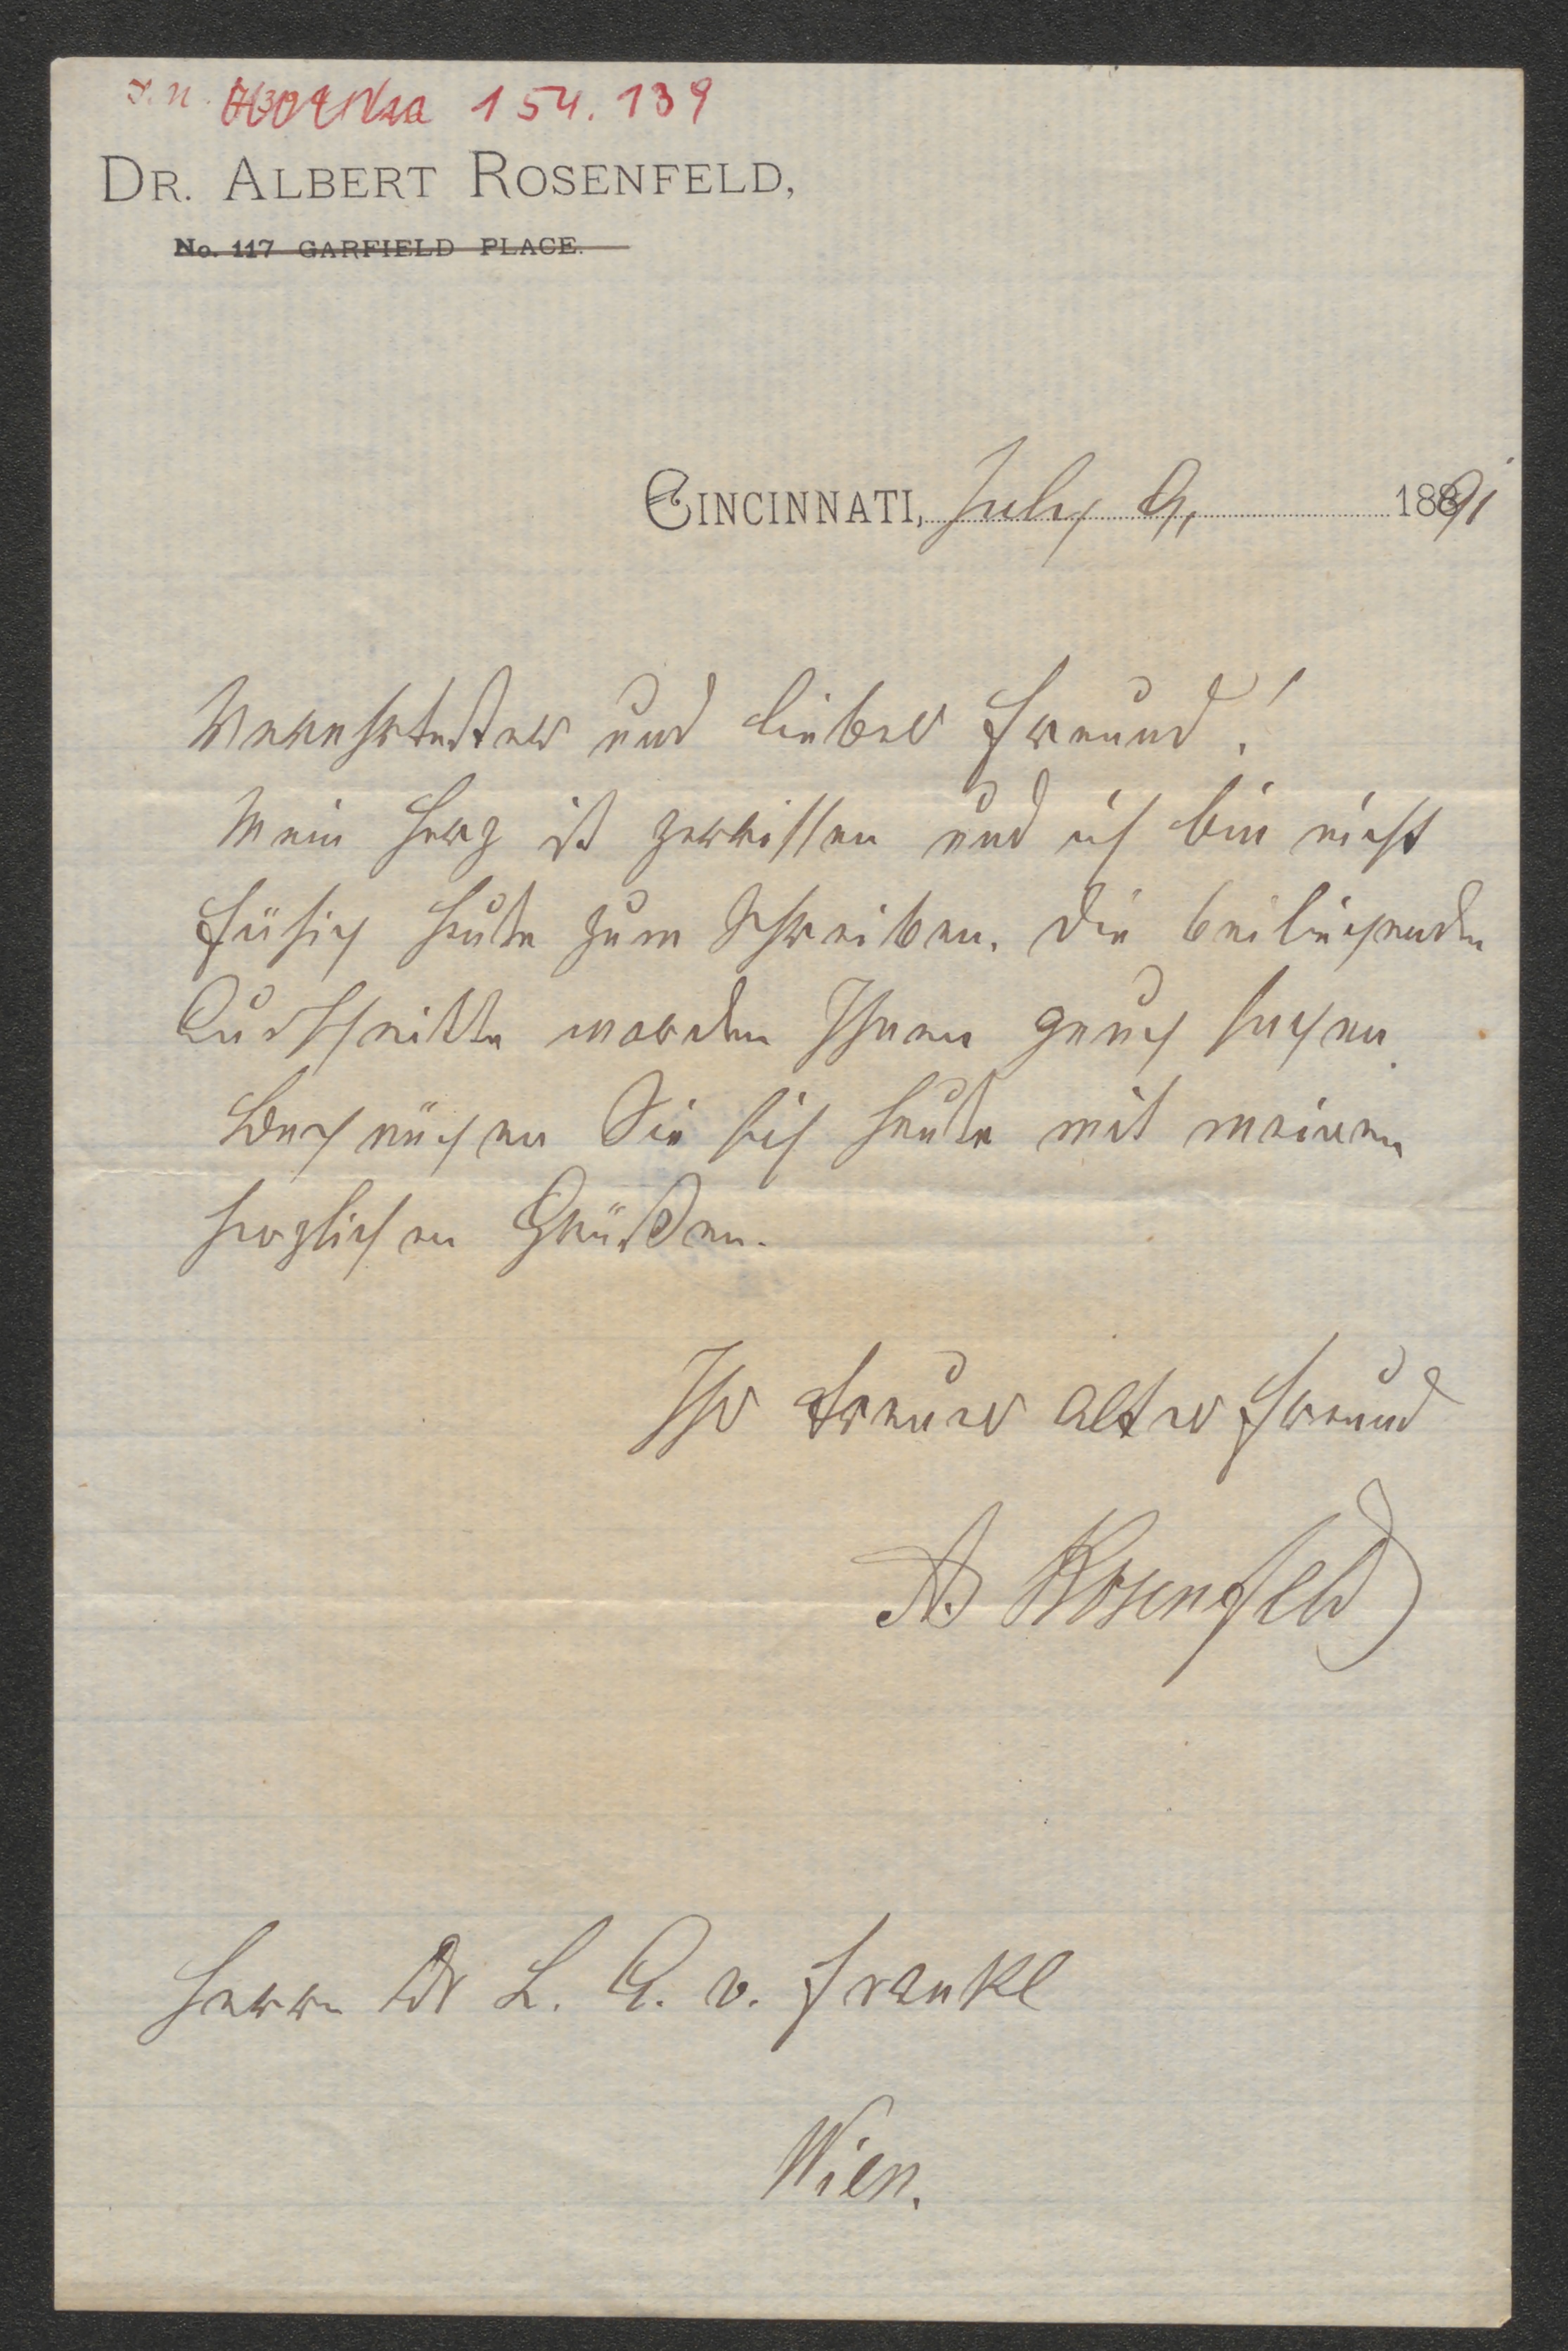 J. N. 154.139
DR. ALBERT ROSENFELD,
No. 117 GARFIELD PLACE.
CINCINNATI, July 9, 1891
Verehrtester und lieber Freund!
Mein Herz ist zerrissen und ich bin nicht
fähig heute zum Schreiben. Die beiliegenden
Ausschnitte werden Ihnen genug sagen.
Begnügen Sie sich heute mit meinen
herzlichen Grüßen.
Ihr treuer alter Freund
A Rosenfeld
Herrn Dr L. A. v. Frankl
Wien.